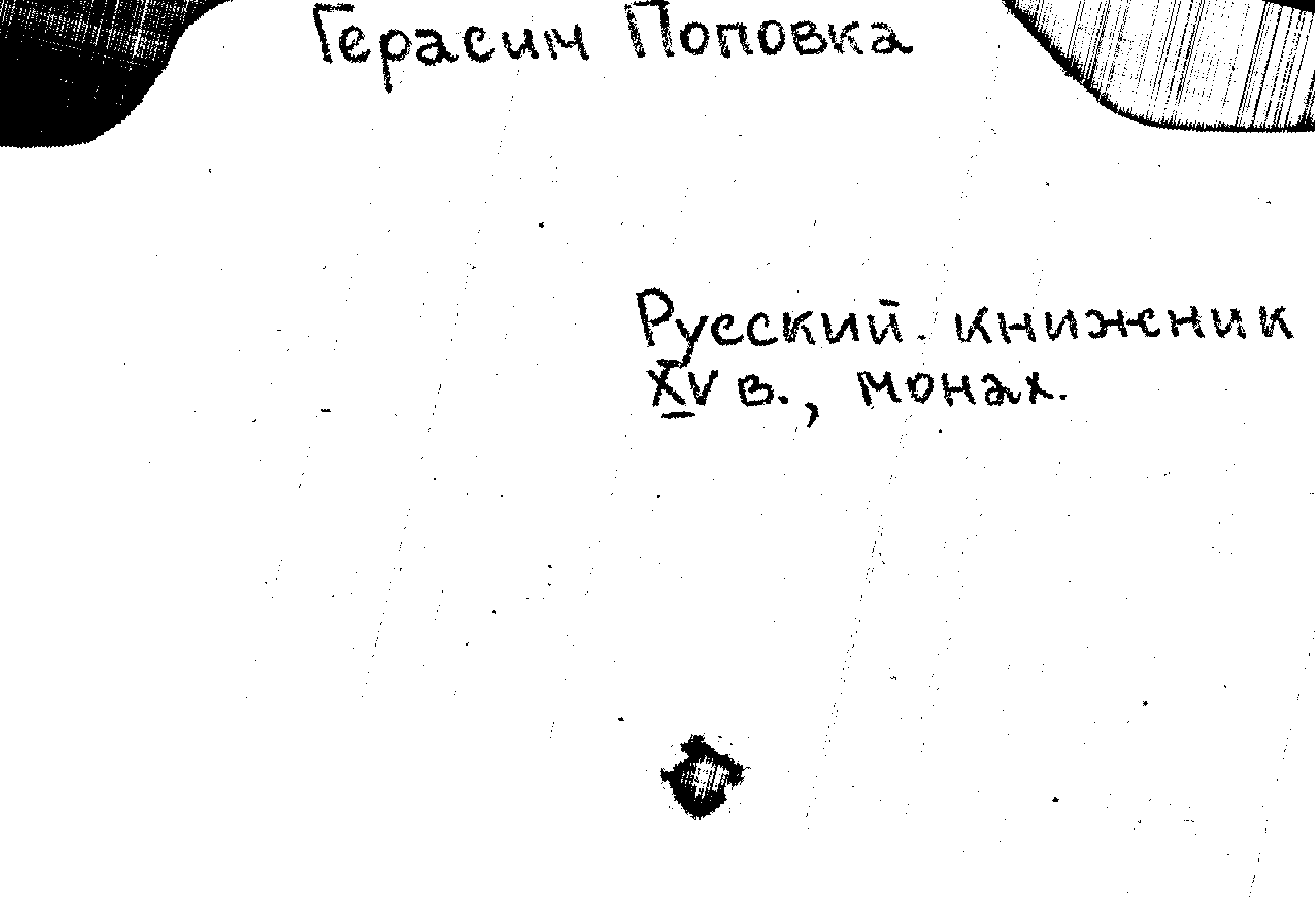 Герасим Поповка
Русский книжник
XV в., монах.